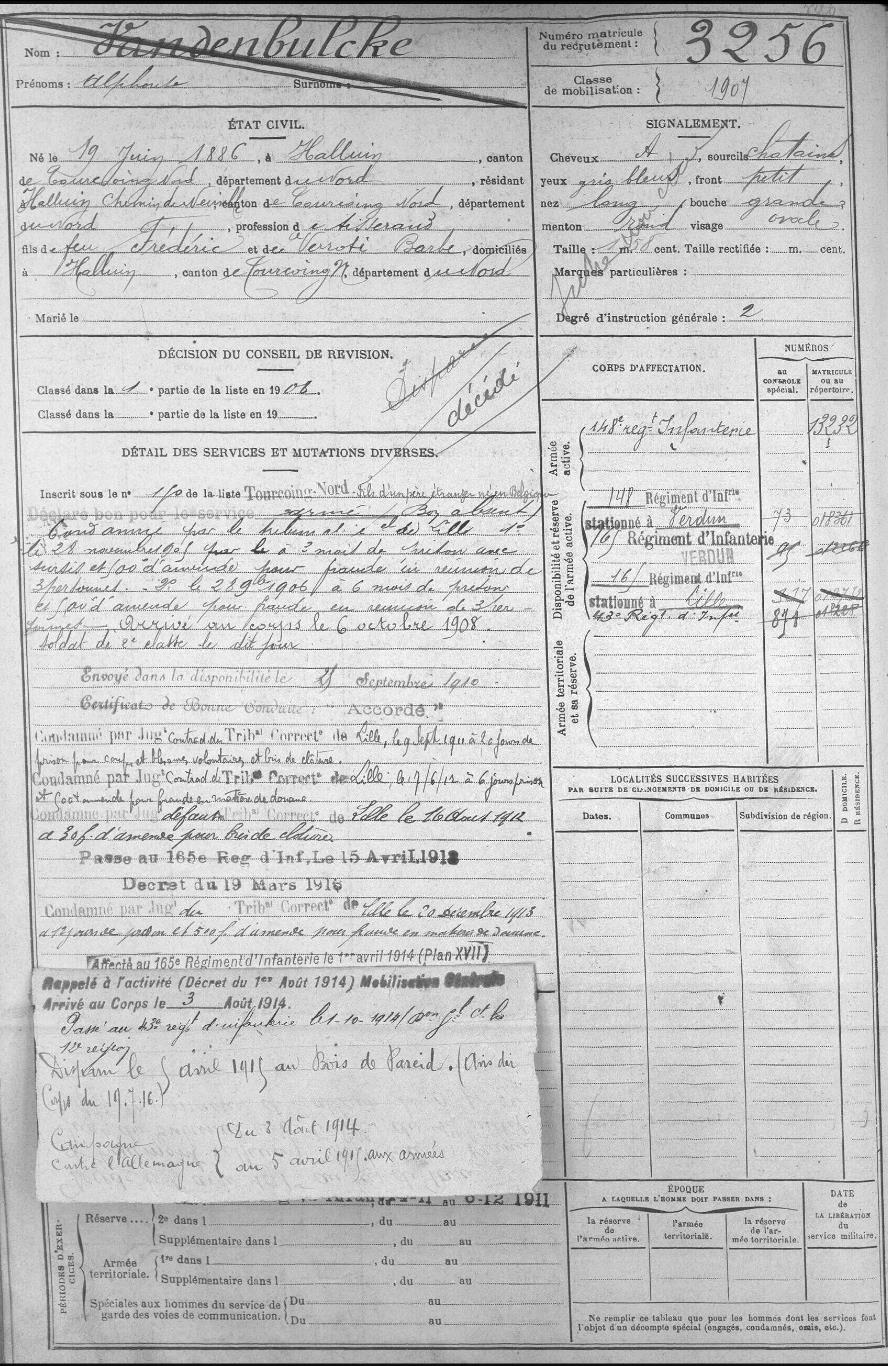 Nom : Vandenbulcke
Prénoms : Alphonse Surnoms :
Numéro matricule du recrutement : 3256
Classe de mobilisation : 1907
ÉTAT CIVIL.
Né le 19 Juin 1886, à Halluin, canton
de Tourcoing Nord, département du Nord, résidant
à Halluin Chemin du canton de Tourcoing Nord, département
du Nord, profession de tisserand
fils de feu Frédéric et de Verroti Barbe, domiciliés
à Halluin, canton de Tourcoing N. département du Nord
Marié le
SIGNALEMENT.
Cheveux sourcils chatains,
yeux gris bleus, front petit
nez long, bouche grande
menton rond visage ovale.
Taille : 1 m. 58 cent. Taille rectifiée : m. cent.
Marques particulières :
Degré d'instruction générale : 2
DÉCISION DU CONSEIL DE REVISION.
Classé dans la 1e partie de la liste en 1906.
Classé dans la e partie de la liste en 19
Disparu
décédé
DÉTAIL DES SERVICES ET MUTATIONS DIVERSES.
Inscrit sous le no 150 de la liste Tourcoing-Nord Fils d'un père étranger né en Belgique
Déclaré bon pour le service armé (Bon absent)
Condamné par le tribunal de Lille 1°
le 28 novembre 1905 à 3 mois de prison avec
sursis et 500 d'amende pour fraude en réunion de
3 personnes. - 2° le 22 9bre 1906 à 6 mois de prison
et 500 d'amende pour fraude en réunion de 3 per-
sonnes - Arrivé au corps le 6 octobre 1908.
soldat de 2e classe le dit jour
Envoyé dans la disponibilité le 25 Septembre 1910
Certificat de Bonne Conduite : "Accordé"
Condamné par Jugt Contrad du Tribal Correctl de Lille, le 9 Sept 1911 à 20 jours de
prison pour coups et blessures volontaires et bris de clôture.
Condamné par Jugt Contrad de Tribal Correctl de Lille, le 7/6/12 à 6 jours prison
et 500f amende pour fraude en matière de douane
Condamné par Jugt défaut Tribal Correctl de Lille le 16 Aout 1912
à 30f. d'amende pour bris de clôture.
Passe au 165e Reg d'Inf, Le 15 Avril 1913
Decret du 19 Mars 1913
Condamné par Jugt du Tribal Correctl de Lille le 20 Décembre 1913
à 12 jours de prison et 500 f. d'amende pour fraude en matière de Douane.
Affecté au 165e Régiment d'Infanterie le 1er avril 1914 (Plan XVII)
Rappelé à l'activité (Décret du 1er Août 1914) Mobilisation Générale
Arrivé au Corps le 3 Août 1914.
Passé au 43e régt d'infanterie le 1-10-1914
12e région
Disparu le 5 avril 1915 au Bois de Pareid. (Avis du
Corps du 19.7.16.)
Campagne contre l'allemagne { Du 3 Août 1914
au 5 avril 1915. aux armées
au 6-12 1911
PÉRIODES D'EXERCICES.
Réserve .... 2e dans l , du au
Supplémentaire dans l , du au
Armée territoriale. 1re dans l , du au
Supplémentaire dans l , du au
Spéciales aux hommes du service de garde des voies de communication. Du au
Du au
CORPS D'AFFECTATION.
NUMÉROS
au CONTROLE spécial.
MATRICULE ou au répertoire.
Armée active.
148e régt Infanterie 13232
Disponibilité et réserve de l'armée active.
148 Régiment d'Infrie
stationné à Verdun 73 018361
165 Régiment d'Infanterie
VERDUN
165 Régiment d'Infrie
stationné à Lille
43e Régt d'Infie
Armée territoriale et sa réserve.
LOCALITÉS SUCCESSIVES HABITÉES
PAR SUITE DE CHANGEMENTS DE DOMICILE OU DE RÉSIDENCE.
Dates. Communes Subdivision de région.
D DOMICILE.
R RÉSIDENCE.
ÉPOQUE
A LAQUELLE L'HOMME DOIT PASSER DANS :
la réserve de l'armée active.
l'armée territoriale.
la réserve de l'armée territoriale.
DATE de LA LIBÉRATION du service militaire.
Ne remplir ce tableau que pour les hommes dont les services font
l'objet d'un décompte spécial (engagés, condamnés, omis, etc.).